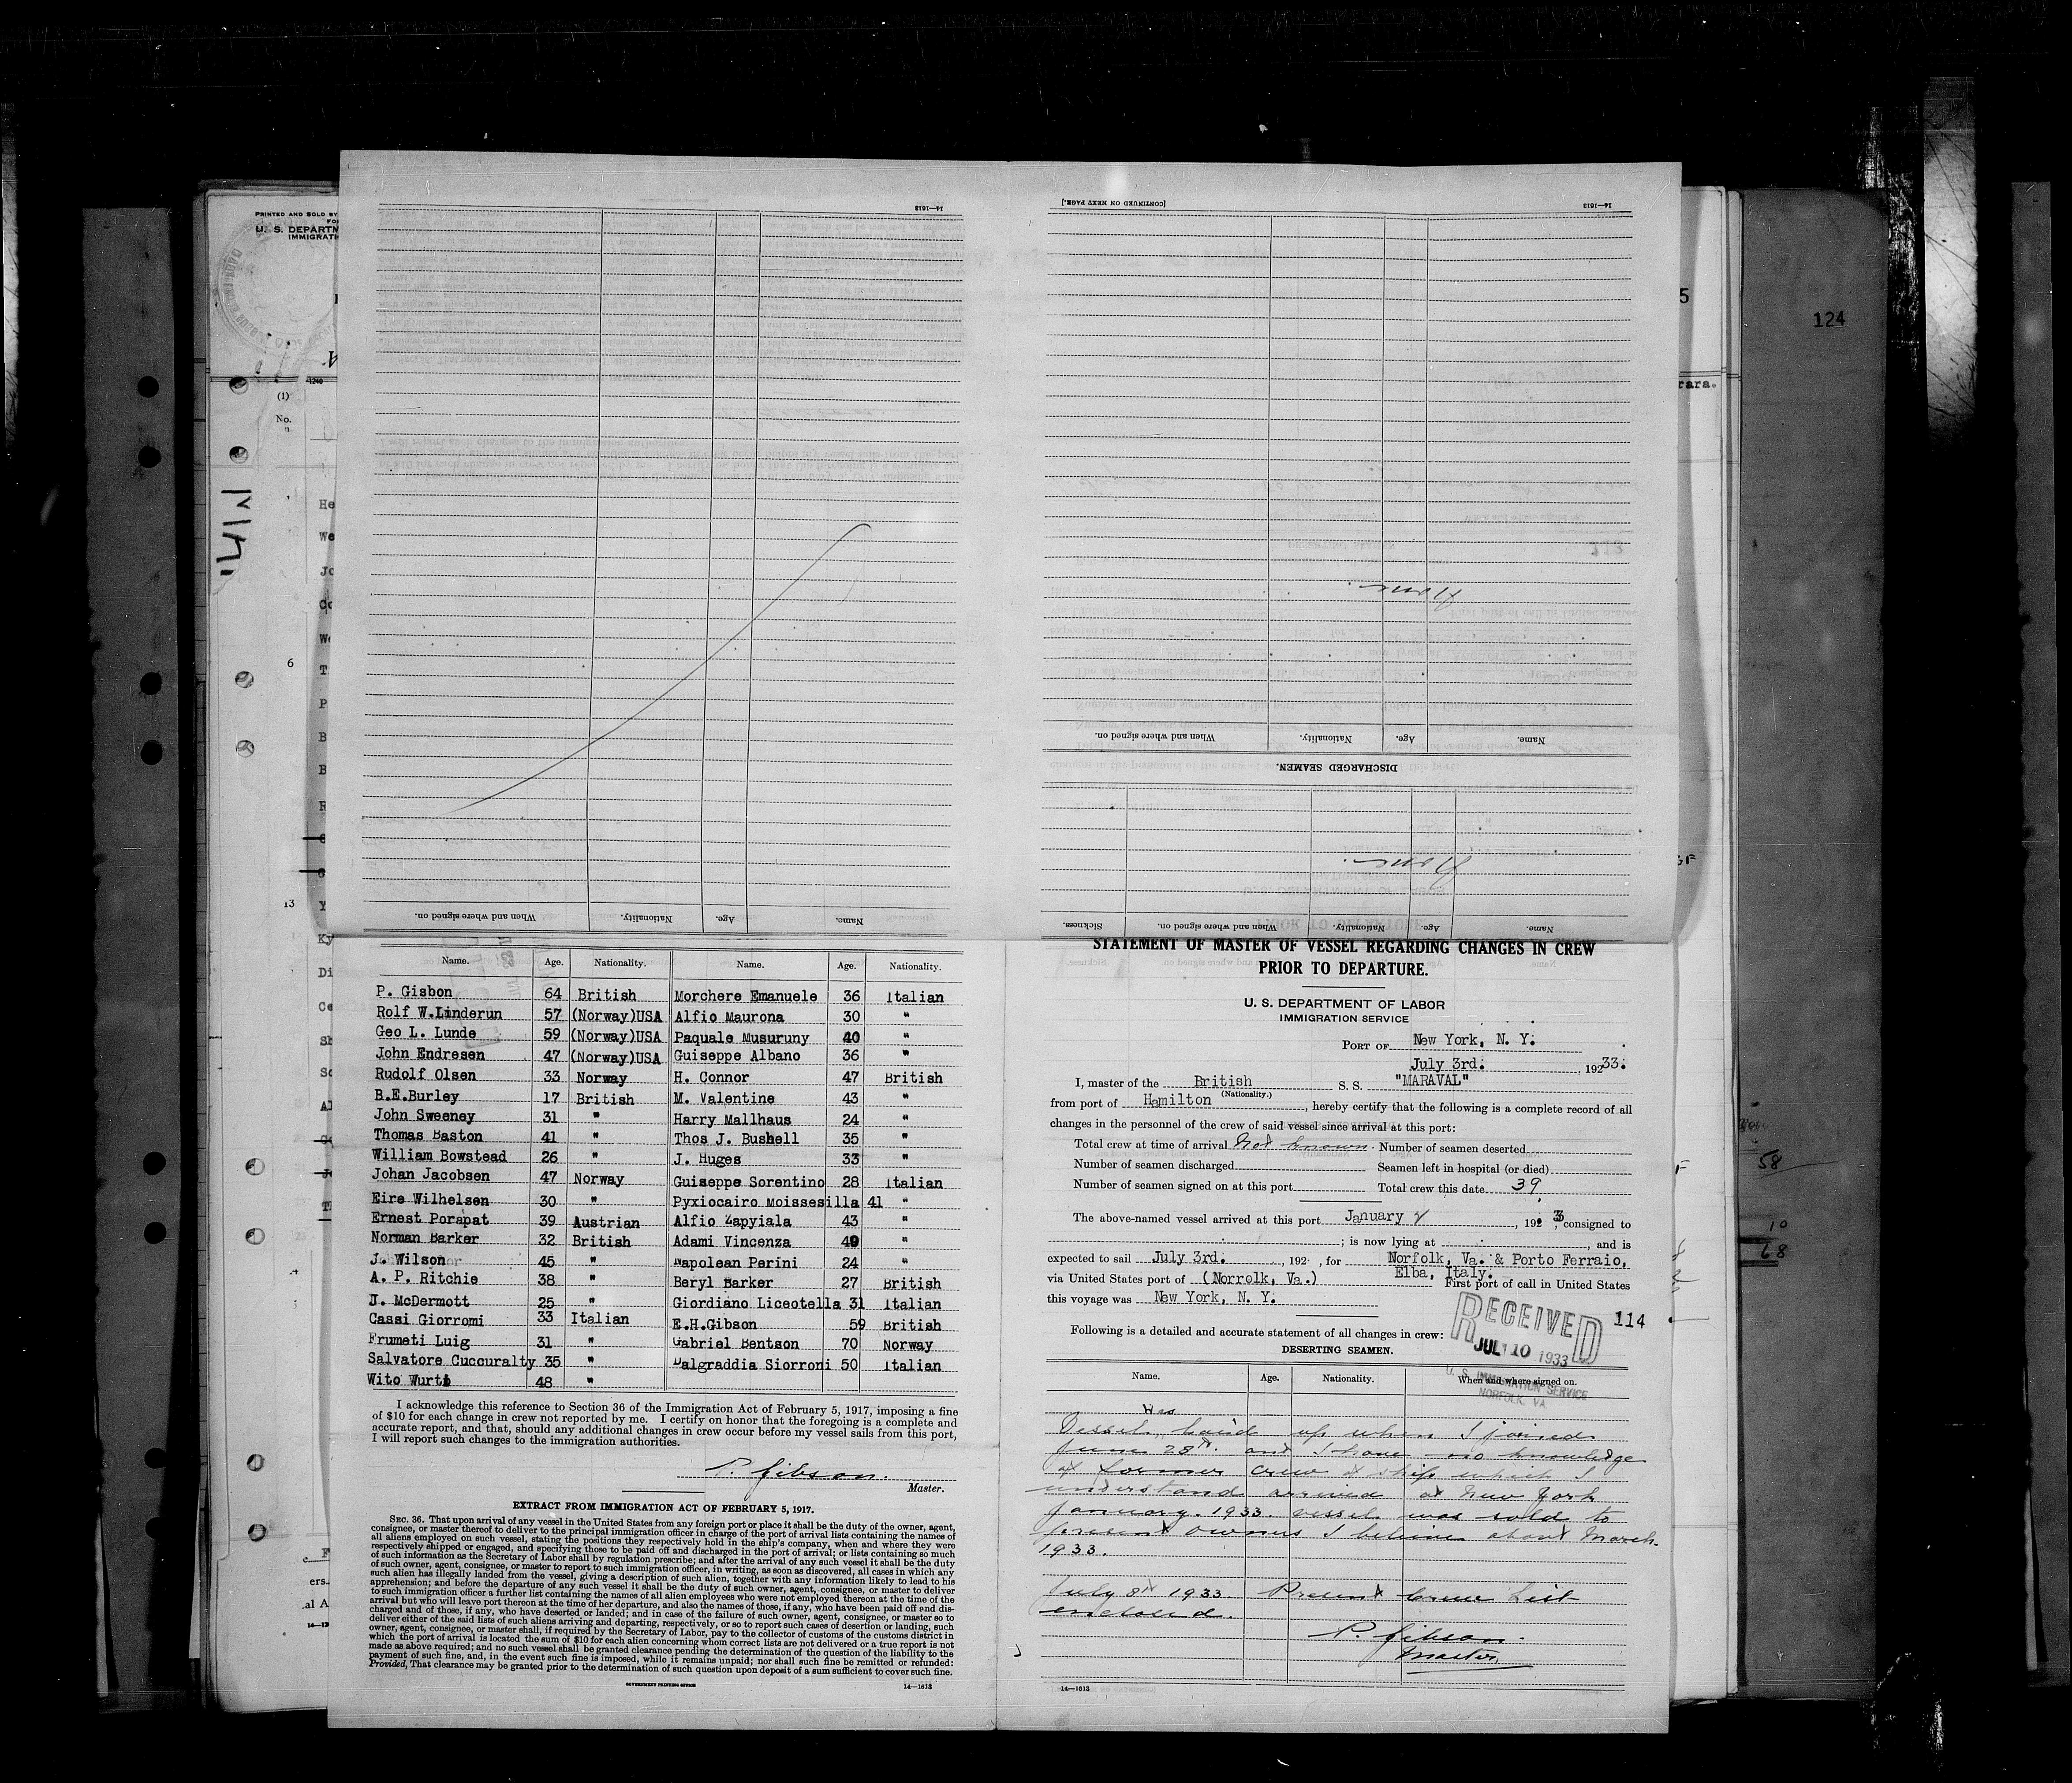 PRINTED AND SOLD BY
U. S. DEPARTM
IMMIGRATI
(1)
No.
6
13
124
58
10
68
14—1613
[CONTINUED ON NEXT PAGE.]
14—1613
None.
When and where signed on. Nationality. Age. Name.
DISCHARGED SEAMEN.
None.
Sickness. When and where signed on. Nationality. Age. Name.
When and where signed on. Nationality. Age. Name.
Name. Age. Nationality. Name. Age. Nationality.
P. Gisbon 64 British Morchere Emanuele 36 Italian
Rolf W.Linderun 57 (Norway)USA Alfio Maurona 30 "
Geo L. Lunde 59 (Norway)USA Paquale Musuruny 40 "
John Endresen 47 (Norway)USA Guiseppe Albano 36 "
Rudolf Olsen 33 Norway H. Connor 47 British
B.E.Burley 17 British M. Valentine 43 "
John Sweeney 31 " Harry Mallhaus 24 "
Thomas Baston 41 " Thos J. Bushell 35 "
William Bowstead 26 " J. Huges 33 "
Johan Jacobsen 47 Norway Guiseppe Sorentino 28 Italian
Eire Wilhelsen 30 " Pyxiocairo Moissesilla 41 "
Ernest Porapat 39 Austrian Alfio Zapyiala 43 "
Norman Barker 32 British Adami Vincenza 49 "
J. Wilson 45 " Napolean Perini 24 "
A. P. Ritchie 38 " Beryl Barker 27 British
J. McDermott 25 " Giordiano Liceotella 31 Italian
Cassi Giorromi 33 Italian E.H.Gibson 59 British
Frumeti Luig 31 " Gabriel Bentson 70 Norway
Salvatore Cuccuralty 35 " Dalgraddia Siorroni 50 Italian
Wito Wurtb 48 "
I acknowledge this reference to Section 36 of the Immigration Act of February 5, 1917, imposing a fine
of $10 for each change in crew not reported by me. I certify on honor that the foregoing is a complete and
accurate report, and that, should any additional changes in crew occur before my vessel sails from this port,
I will report such changes to the immigration authorities.
P. Gibson.
Master.
EXTRACT FROM IMMIGRATION ACT OF FEBRUARY 5, 1917.
SEC. 36. That upon arrival of any vessel in the United States from any foreign port or place it shall be the duty of the owner, agent,
consignee, or master thereof to deliver to the principal immigration officer in charge of the port of arrival lists containing the names of
all aliens employed on such vessel, stating the positions they respectively hold in the ship's company, when and where they were
respectively shipped or engaged, and specifying those to be paid off and discharged in the port of arrival; or lists containing so much
of such information as the Secretary of Labor shall by regulation prescribe; and after the arrival of any such vessel it shall be the duty
of such owner, agent, consignee, or master to report to such immigration officer, in writing, as soon as discovered, all cases in which any
such alien has illegally landed from the vessel, giving a description of such alien, together with any information likely to lead to his
apprehension; and before the departure of any such vessel it shall be the duty of such owner, agent, consignee, or master to deliver
to such immigration officer a further list containing the names of all alien employees who were not employed thereon at the time of the
arrival but who will leave port thereon at the time of her departure, and also the names of those, if any, who have been paid off and dis-
charged and of those, if any, who have deserted or landed; and in case of the failure of such owner, agent, consignee, or master so to
deliver either of the said lists of such aliens arriving and departing, respectively, or so to report such cases of desertion or landing, such
owner, agent, consignee, or master shall, if required by the Secretary of Labor, pay to the collector of customs of the customs district in
which the port of arrival is located the sum of $10 for each alien concerning whom correct lists are not delivered or a true report is not
made as above required; and no such vessel shall be granted clearance pending the determination of the question of the liability to the
payment of such fine, and, in the event such fine is imposed, while it remains unpaid; nor shall such fine be remitted or refunded:
Provided, That clearance may be granted prior to the determination of such question upon deposit of a sum sufficient to cover such fine.
GOVERNMENT PRINTING OFFICE 14—1613
STATEMENT OF MASTER OF VESSEL REGARDING CHANGES IN CREW
PRIOR TO DEPARTURE.
U. S. DEPARTMENT OF LABOR
IMMIGRATION SERVICE
PORT OF New York, N. Y.
July 3rd. , 19233.
I, master of the British S. S. "MARAVAL"
(Nationality.)
from port of Hamilton, hereby certify that the following is a complete record of all
changes in the personnel of the crew of said vessel since arrival at this port:
Total crew at time of arrival Not known. Number of seamen deserted
Number of seamen discharged Seamen left in hospital (or died)
Number of seamen signed on at this port Total crew this date 39
The above-named vessel arrived at this port January 2, 192 33, consigned to
; is now lying at , and is
expected to sail July 3rd. , 192 , for Norfolk, Va. & Porto Ferraio,
Elba, Italy.
via United States port of (Norrolk, Va.) First port of call in United States
this voyage was New York, N. Y.
RECEIVED
JUL 10 1933
U. S. IMMIGRATION SERVICE
NORFOLK, VA
114
Following is a detailed and accurate statement of all changes in crew:
DESERTING SEAMEN.
Name. Age. Nationality. When and where signed on.
was
Vessel laid up when I joined
June 28th. and I have no knowledge
of former crew of ship which I
understand arrived at New York
January. 1933. vessel was sold to
present owners I believe about March.
1933.
July 8th 1933. Present Crew List
enclosed.
P. Gibson.
Master.
14—1613